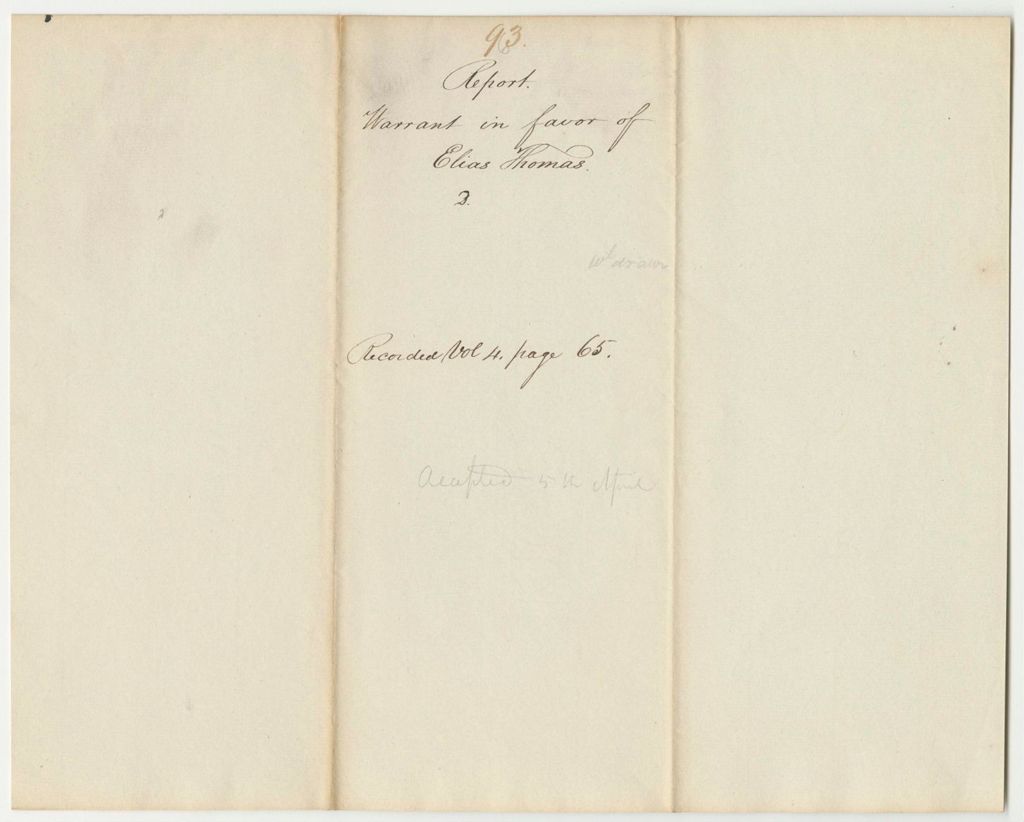 93.
Report.
Warrant in favor of
Elias Thomas.
3.
wt drawn
Recorded Vol 4. page 65.
Accepted 5th April